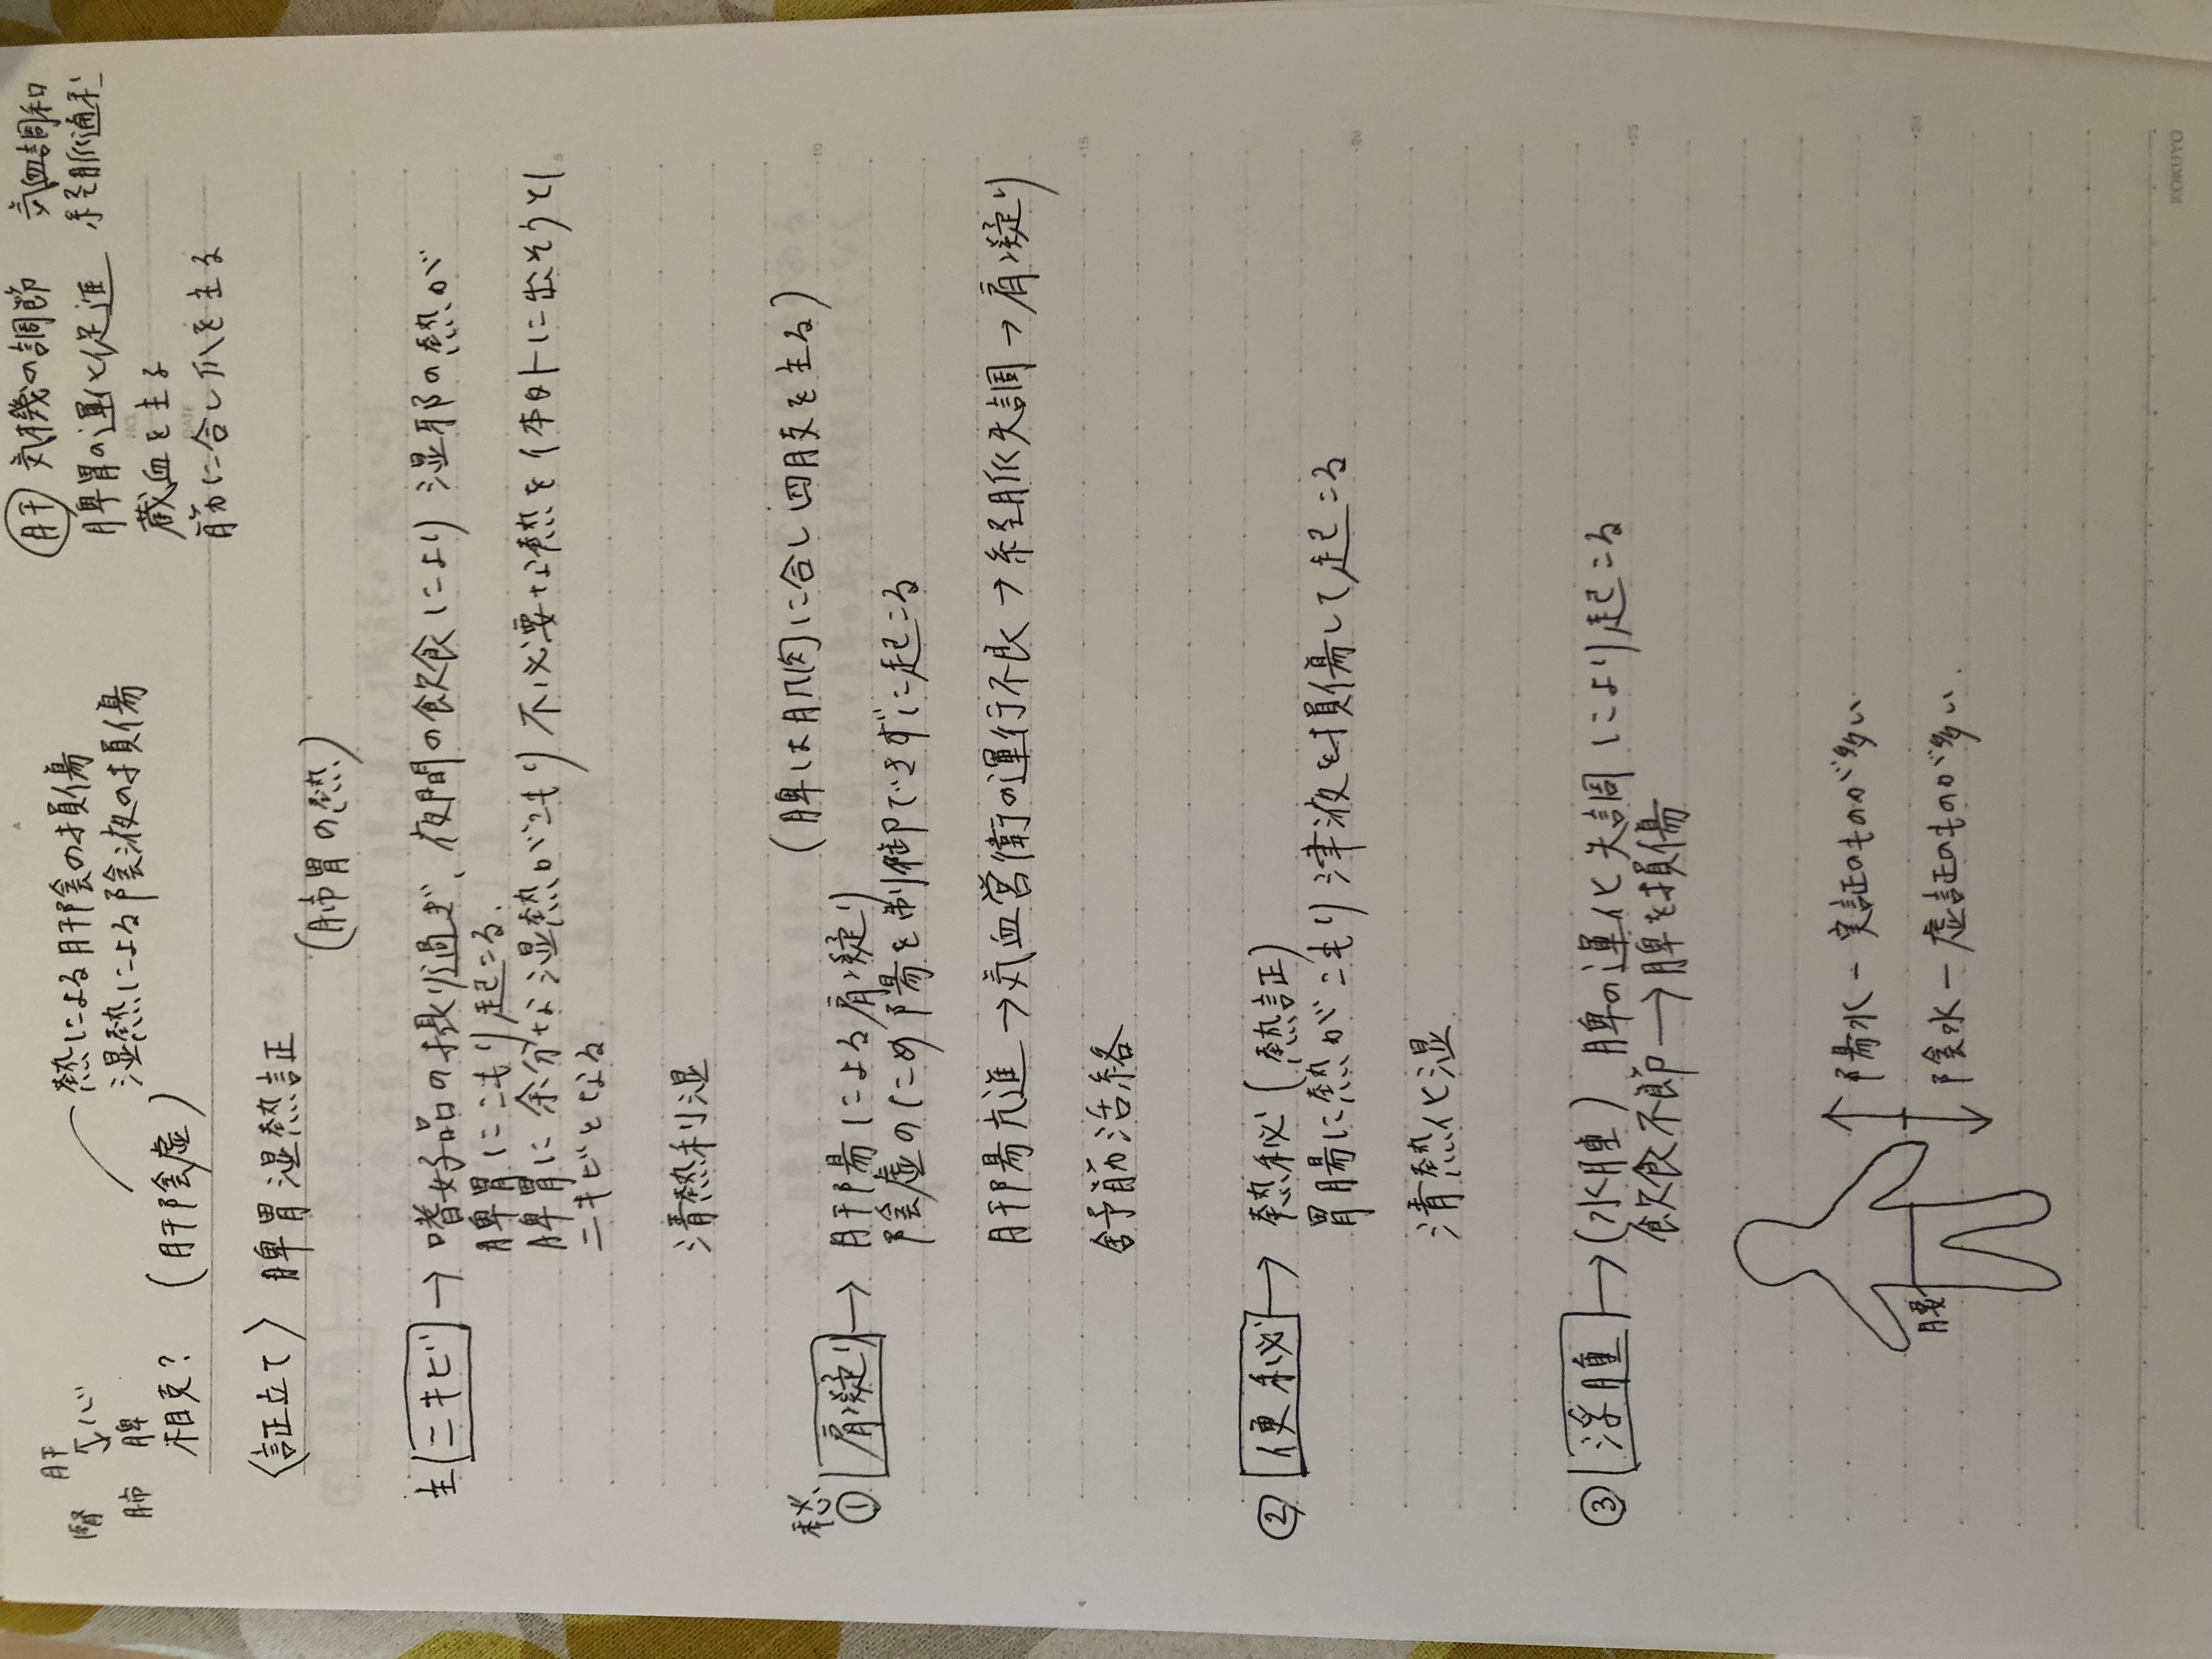 肝
腎 心
肺 脾
相克?
熱による肝陰の損傷
湿熱による陰液の損傷
(肝陰虚)
肝 気機の調節 気血調和
脾胃の運化促進 経脈通利
蔵血を主る
筋に合し爪を主る
〈証立て〉 脾胃湿熱証
(肺胃の熱)
主 ニキビ → 嗜好品の摂り過ぎ、夜間の飲食により湿邪の熱が
脾胃にこもり起こる.
脾胃に余分な湿熱がこもり不必要な熱を体外に出そうとし
ニキビとなる.
清熱利湿
愁
① 肩凝り → 肝陽による肩凝り (脾は肌肉に合し四肢を主る)
陰虚のため陽を制御できずに起こる
肝陽亢進 → 気血営衛の運行不良 → 経脈失調 → 肩凝り
舎予筋活絡
② 便秘 → 熱秘 (熱証)
胃腸に熱がこもり津液を損傷して起こる
清熱化湿
③ 浮腫 → (水腫) 脾の運化失調により起こる
飲食不節 → 脾を損傷
腰
陽水 - 実証のものが多い
陰水 - 虚証のものが多い.
KOKUYO